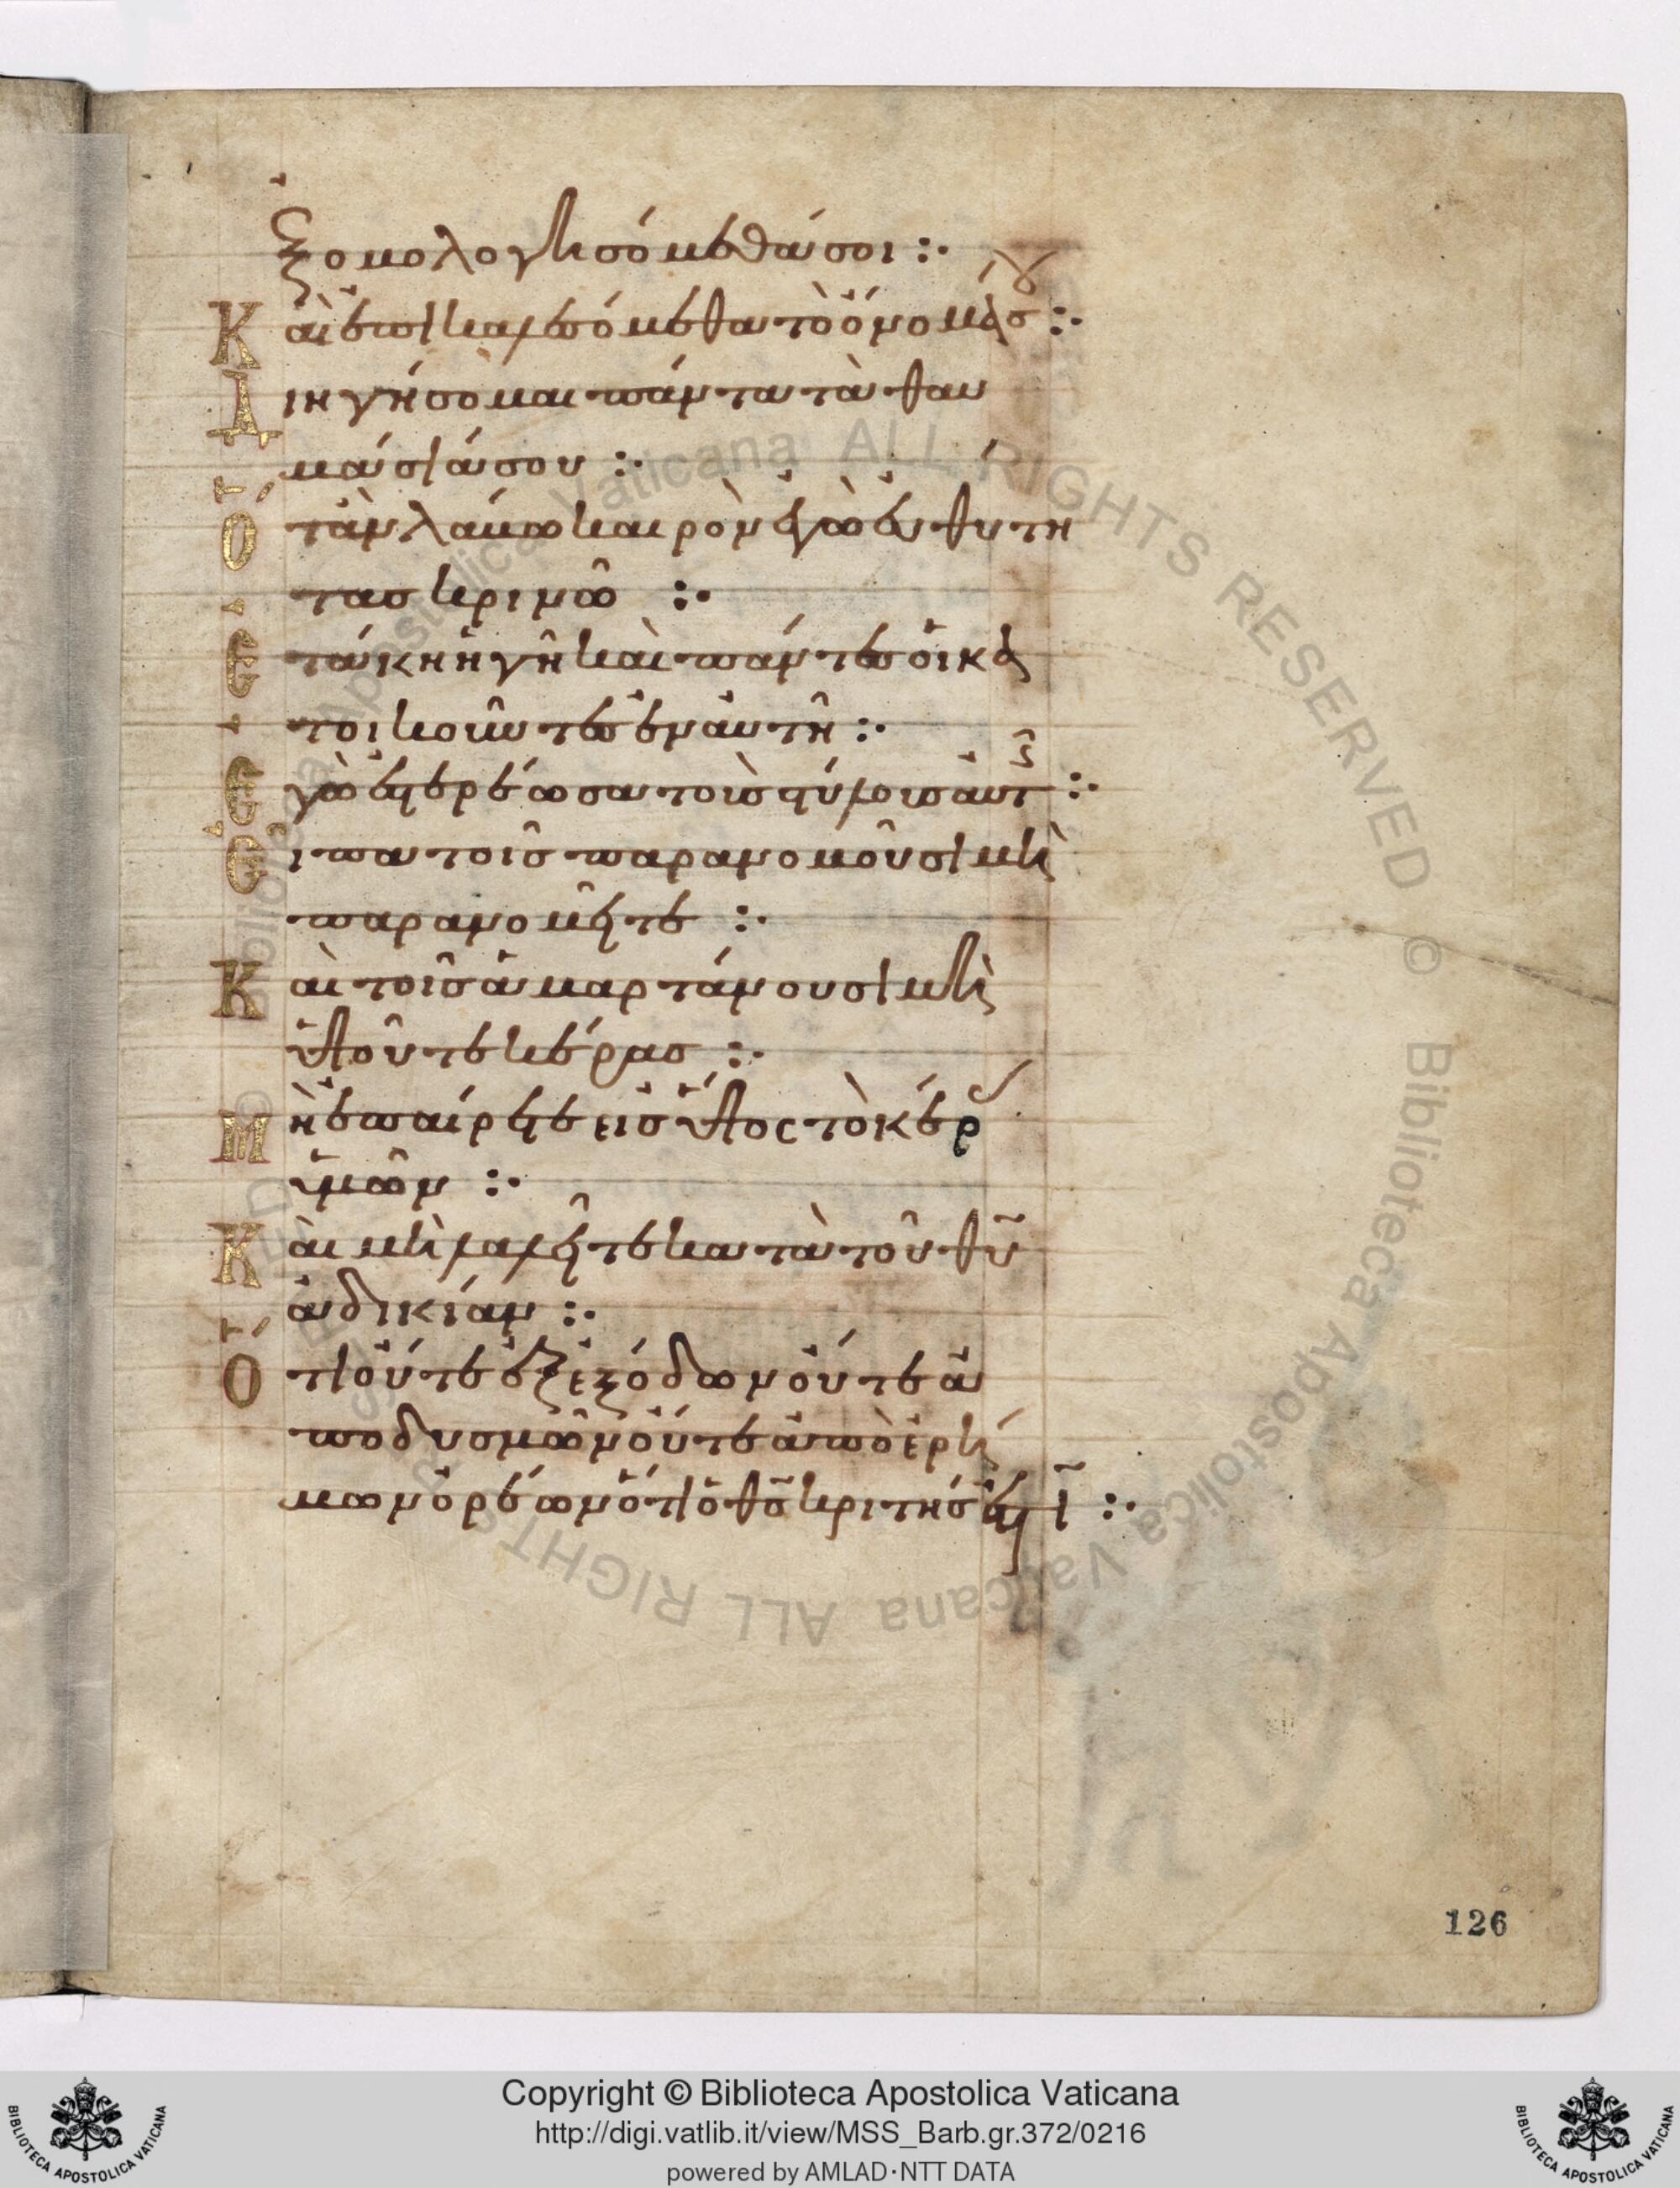 ἐξομολογησόμεθά σοι :·
Καὶ ἐπικαλεσόμεθα τὸ ὄνομά σου :·
Διηγήσομαι πάντα τὰ θαυ
μάσιά σου :·
Ὅταν λάβω καιρὸν ἐγὼ εὐθύτη
τας κρινῶ :·
Ἐτάκη ἡ γῆ καὶ πάντες οἱ κα
τοικοῦντες ἐν αὐτῇ :·
Ἐγὼ ἐστερέωσα τοὺς στύλους αὐτῆς :·
Εἶπα τοῖς παρανομοῦσι μὴ
παρανομεῖτε :·
Καὶ τοῖς ἁμαρτάνουσι μὴ
ὑψοῦτε κέρας :·
Μὴ ἐπαίρεσθε εἰς ὕψος τὸ κέρας
ὑμῶν :·
Καὶ μὴ λαλεῖτε κατὰ τοῦ θῦ
ἀδικίαν :·
Ὅτι οὔτε ἐξ ἐξόδων οὔτε ἀ
πὸ δυσμῶν οὔτε ἀπὸ ἐρή
μων ὀρέων ὅτι ὁ θς κριτής ἐστι :·
126
Copyright © Biblioteca Apostolica Vaticana
http://digi.vatlib.it/view/MSS_Barb.gr.372/0216
powered by AMLAD·NTT DATA